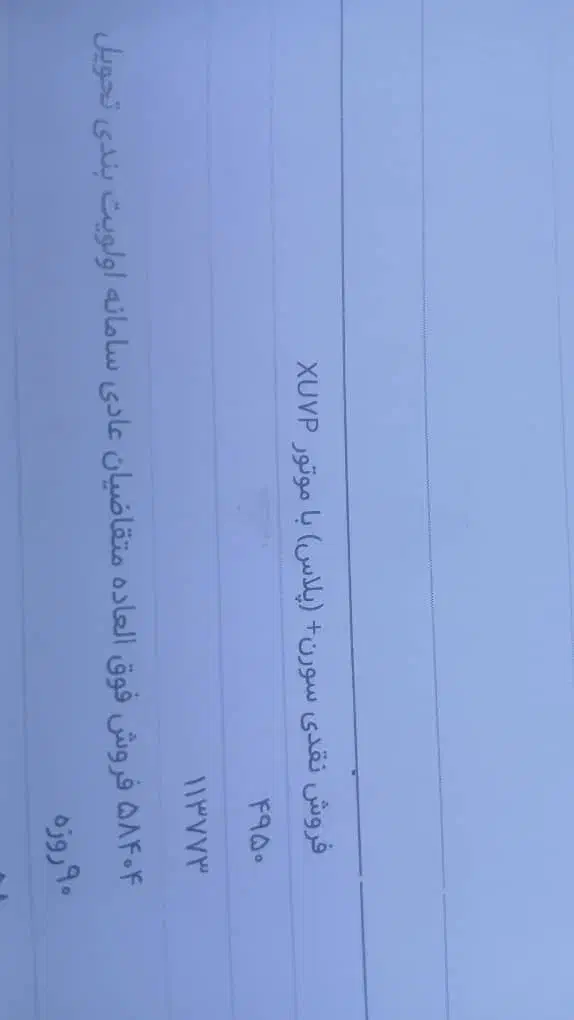 فروش نقدی سورن+ (پلاس) با موتور XUVP
۴۹۵۰
۱۱۳۷۷۳
۵۸۴۰۴ فروش فوق العاده متقاضیان عادی سامانه اولویت بندی تحویل
۹۰روزه